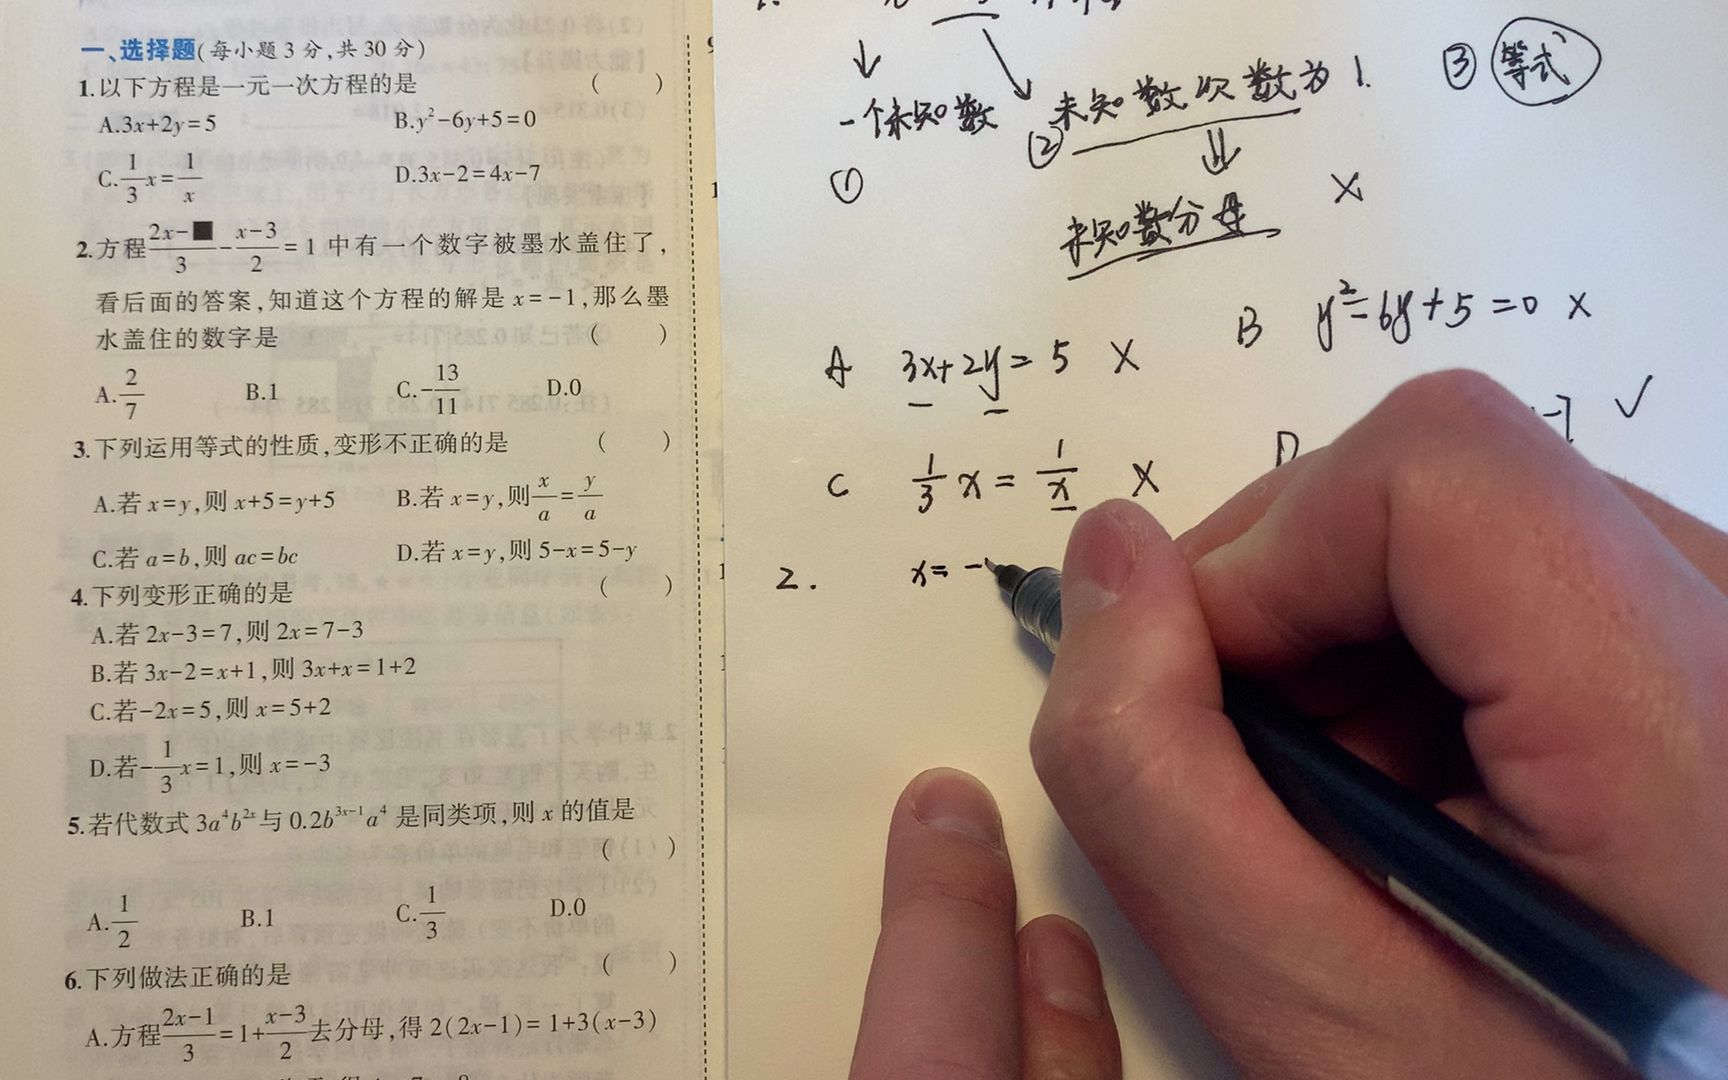 一、选择题(每小题3分,共30分)
1.以下方程是一元一次方程的是 ( )
A.3x+2y=5 B.y²-6y+5=0
C.1/3x=1/x D.3x-2=4x-7
2.方程(2x-■)/3-(x-3)/2=1 中有一个数字被墨水盖住了,
看后面的答案,知道这个方程的解是 x=-1,那么墨
水盖住的数字是 ( )
A.2/7 B.1 C.-13/11 D.0
3.下列运用等式的性质,变形不正确的是 ( )
A.若 x=y,则 x+5=y+5 B.若 x=y,则x/a=y/a
C.若 a=b,则 ac=bc D.若 x=y,则 5-x=5-y
4.下列变形正确的是 ( )
A.若 2x-3=7,则 2x=7-3
B.若 3x-2=x+1,则 3x+x=1+2
C.若-2x=5,则 x=5+2
D.若-1/3x=1,则 x=-3
5.若代数式 3a⁴b²ˣ与 0.2b³ˣ⁻¹a⁴ 是同类项,则 x 的值是
( )
A.1/2 B.1 C.1/3 D.0
6.下列做法正确的是 ( )
A.方程(2x-1)/3=1+(x-3)/2去分母,得 2(2x-1)=1+3(x-3)
③ 等式
一个未知数 ② 未知数次数为1.
①
未知数分母 ×
A 3x+2y=5 × B y²-6y+5=0 ×
C 1/3 x=1/x × D -7 ✓
2. x=-